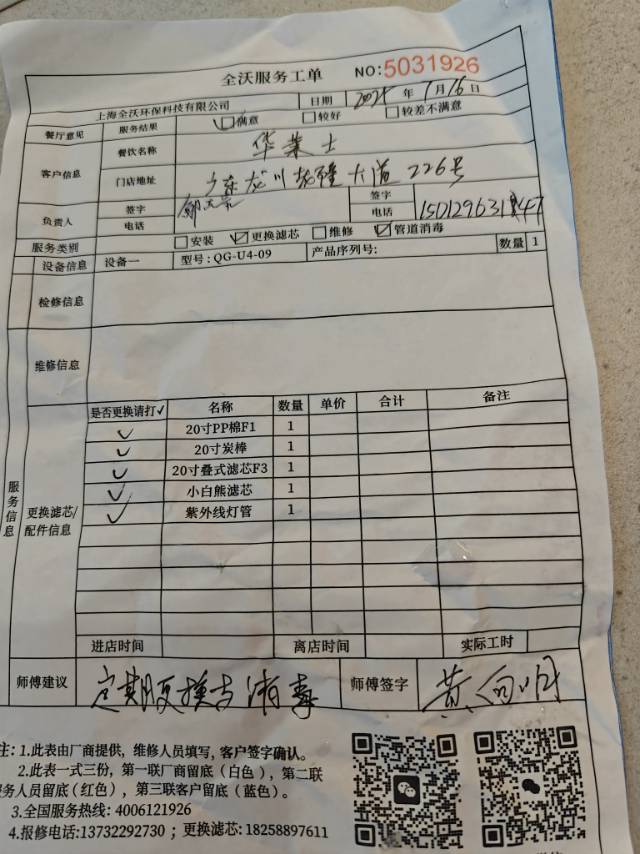 全沃服务工单 NO:5031926
上海全沃环保科技有限公司 日期 年 1月16日
餐厅意见 服务结果 ☑满意 □较好 □较差不满意
客户信息 餐饮名称 华莱士
门店地址 广东龙川 大道226号
负责人 签字 签字
电话 电话
服务类别 □安装 ☑更换滤芯 □维修 ☑管道消毒
设备信息 设备一 型号:QG-U4-09 产品序列号: 数量 1
检修信息
维修信息
服务信息
更换滤芯/配件信息
是否更换请打✓ 名称 数量 单价 合计 备注
✓ 20寸PP棉F1 1
✓ 20寸炭棒 1
✓ 20寸叠式滤芯F3 1
✓ 小白熊滤芯 1
✓ 紫外线灯管 1
进店时间 离店时间 实际工时
师傅建议 定期更换与消毒 师傅签字 黄向
注:1.此表由厂商提供,维修人员填写,客户签字确认。
2.此表一式三份,第一联厂商留底(白色),第二联
服务人员留底(红色),第三联客户留底(蓝色)。
3.全国服务热线:4006121926
4.报修电话:13732292730;更换滤芯:18258897611